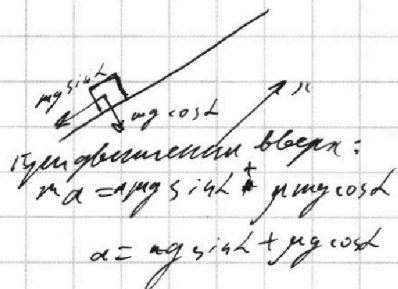 mg sinα
mg cosα
x
при движении вверх:
ma = mg sinα + μmg cosα
a = g sinα + μg cosα